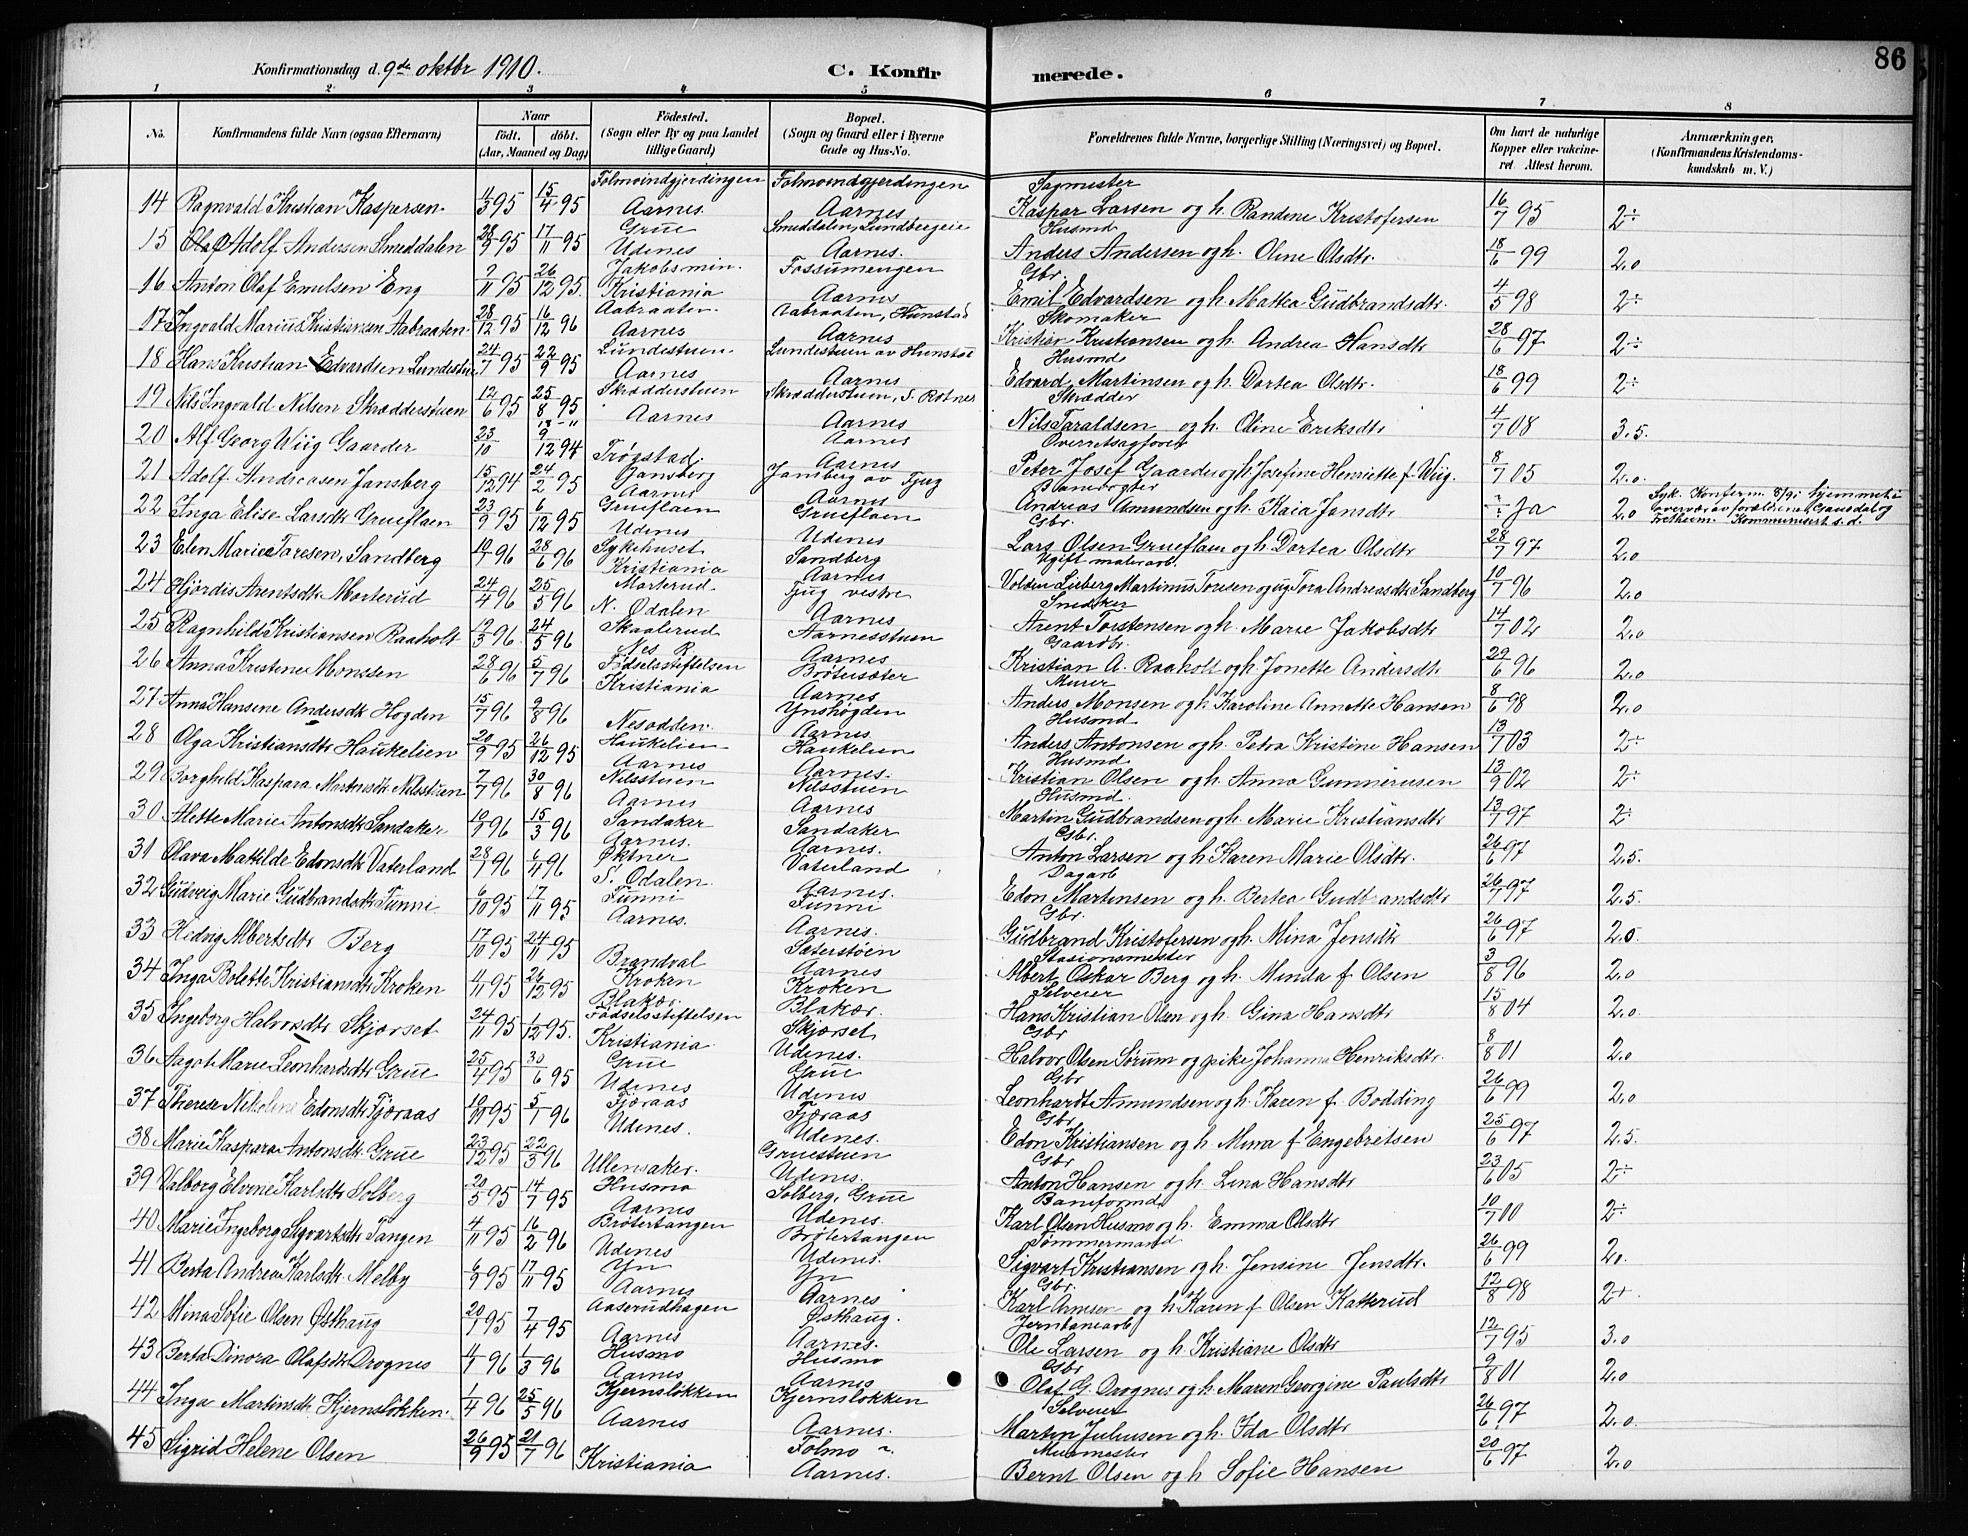 86
Konfirmationsdag d. 9de oktbr 1910.
C. Konfirmerede.
1 2 3 4 5 6 7 8
No.
Konfirmandens fulde Navn (ogsaa Efternavn)
Naar
født. døbt.
(Aar, Maaned og Dag)
Fødested.
(Sogn eller By og paa Landet tillige Gaard)
Bopæl.
(Sogn og Gaard eller i Byerne Gade og Hus-No.
Forældrenes fulde Navne, borgerlige Stilling (Næringsvei) og Bopæl.
Om havt de naturlige Kopper eller vaccineret. Attest herom.
Anmærkninger,
(Konfirmandens Kristendomskundskab m. V.)
14 Ragnvald Kristian Kaspersen 4/3 95 15/4 95 Folmoindgjerdingen Aarnes Folmoindgjerdingen Aarnes Sagmester Kaspar Larsen og h. Randene Kristofersen 16/7 95 2÷
15 Olaf Adolf Andersen Smeddalen 28/9 95 17/11 95 Grue Udenes Smeddalen, Lundbergeie Aarnes Husmd Anders Andersen og h. Oline Olsdtr. 18/6 99 2.0
16 Anton Olaf Emilsen Eng 2/11 95 26/12 95 Jakobs min. Kristiania Fossumengen Aarnes Gbr. Emil Edvardsen og h. Mattea Gudbrandsdtr. 4/5 98 2÷
17 Ingvald Marius Kristiansen Aabraaten 28/12 95 16/12 96 Aabraaten Aarnes Aabraaten, Hunstad Aarnes Skomaker Kristian Kristiansen og h. Andrea Hansdtr 28/6 97 2÷
18 Hans Kristian Edvardsen Lundestuen 24/7 95 22/9 95 Lundestuen Aarnes Lundestuen av Hunstad Aarnes Husmd Edvard Martinsen og h. Dortea Olsdtr. 18/6 99 2÷
19 Nils Ingvald Nilsen Skræddersøuen 12/6 95 25/8 95 Skrædderstuen Aarnes Skrædderstuen, S. Rotnes Aarnes Skrædder Nils Taraldsen og h. Oline Eriksdtr 4/7 08 3.5.
20 Alf Georg Wiig Gaarder 23/10 9/12 94 Trøgstad Aarnes Aarnes Overretssagfører Peter Josef Gaarder og h. Josefine Henriette f. Wiig. 8/7 05 2.0
21 Adolf Andreasen Jansberg 15/12 94 24/2 95 Jansberg Aarnes Jansberg av Fjug Aarnes Banevogter Andreas Amundsen og h. Kaia Jansdtr ÷ Ja 2.0 Syk. Konferm. 8/9 i hjemmet i overvær av forældrene, Gausdal og Fretheim. Kommunicert s.d.
22 Inga Elise Larsdtr Grueflaen 23/9 95 6/12 95 Grueflaen Udenes Grueflaen Udenes Gbr. Lars Olsen Grueflaen og h. Dortea Olsdtr 28/7 97 2.0
23 Elen Marie Toresen, Sandberg 10/4 96 28/6 96 Sykehuset Kristiania Sandberg Aarnes Ugift malerarb. Martinus Toresen og ug Tora Andreasdtr Sandberg 10/7 96 2.0
24 Hjørdis Arentsdtr Morterud 24/4 96 25/5 96 Morterud N. Odalen Fjug vestre Aarnes Snedker Arent Torstensen og h. Marie Jakobsdtr 14/7 02 2.0
25 Ragnhild Kristiansen Raaholt 12/3 96 24/5 96 Skaalerud Nes R. Aarnesstuen Aarnes Gaardbr. Kristian A. Raaholt og h. Jonette Andersdtr 29/6 96 2.0
26 Anna Kristine Monssen 28/6 96 5/7 96 Fødselsstiftelsen Kristiania Brøtesæter Aarnes Murer Anders Monsen og h. Karoline Annette Hansen 8/6 98 2.0
27 Anna Hansene Andersdtr Høgden 15/7 96 9/8 96 Nesodden Ynshøgden Aarnes Husmd Anders Antonsen og h. Petra Kristine Hansen 13/7 03 2÷
28 Olga Kristiansdtr Haukelien 20/9 95 26/12 95 Haukelien Aarnes Haukelien Aarnes. Husmd Kristian Olsen og h. Anna Gunneriusen 13/9 02 2÷
29 Borghild Kaspara Martinsdtr Nilsstuen 7/7 96 30/8 96 Nilsstuen Aarnes Nilsstuen Aarnes Husmd. Martin Gudbrandsen og h. Marie Kristiansdtr 13/7 97 2÷
30 Alette Marie Antonsdtr Sandaker 10/1 96 15/3 96 Sandaker Aarnes. Sandaker Aarnes. Gbr. Anton Larsen og h. Karen Marie Olsdtr. 26/6 97 2.5.
31 Olava Mathilde Edonsdtr Vaterland 28/1 96 6/4 96 Øktner S. Odalen Vaterland Aarnes. Dagarb Edon Martinsen og h. Bertea Gudbrandsdtr 26/7 97 2.5.
32 Gudveig Marie Gudbrandsdtr Funni 6/10 95 17/11 95 Funni Aarnes. Funni Aarnes. Gbr. Gudbrand Kristofersen og h. Mina Jensdtr 26/6 97 2.0
33 Hedvig Albertsdtr Berg 17/10 95 24/11 95 Brandval Sæterstøen Aarnes Stasionsmester Albert Oskar Berg og h. Minda f. Olsen 3/8 96 2.0
34 Inga Bolette Kristiansdtr Kroken 4/11 95 26/12 95 Kroken Blakær. Kroken Blakær. Selveier Hans Kristian Olsen og h. Gina Hansdtr 15/8 04 2.0
35 Ingeborg Halvorsdtr Skjærset 24/11 95 1/12 95. Fødselsstiftelsen Kristiania Skjærset Udenes. Gbr Halvor Olsen Sørum og pike Johanna Henriksdtr. 8/8 01 2.0
36 Aagot Marie Leonhardsdtr Grue 25/4 95 30/6 95 Grue Udenes Grue Udenes Gbr Leonhardt Amundsen og h. Karen f. Bødding 26/6 99 2.0
37 Therese Nikoline Edonsdtr Fjæraas 10/11 95 5/1 96 Fjæraas Udenes. Fjæraas Udenes. Gbr Edon Kristiansen og h. Mina f. Engebretsen 25/6 97 2.5.
38 Marie Kaspara Antonsdtr Grue 23/12 95 22/3 96 Ullensaker. Gruestuen Udenes. Gbr Anton Hansen og h. Lina Hansdtr 23/6 05 2÷
39 Valborg Elvine Karlsdtr Solberg 20/5 95 14/7 95 Husmo Aarnes Solberg, Grue Udenes. Baneformd Karl Olsen Husmo og h. Emma Olsdtr 10/7 00 2÷
40 Marie Ingeborg Sigvartsdtr Tangen 4/11 95 16/2 96 Brøtertangen Udenes Brøtertangen Udenes. Tømmermand Sigvart Kristiansen og h. Jensine Jensdtr. 26/6 99 2.0.
41 Berta Andrea Karlsdtr. Melby 6/9 95 17/11 95 Yn Aarnes Yn Aarnes Gbr. Karl Arnesen og h. Karen f. Olsen Katterud 12/8 98 2+
42 Mina Sofie Olsen Østhaug 20/1 95 7/4 95 Aaserudhagen Aarnes Østhaug. Aarnes. Jernbanearb Ole Larsen og h. Kristiane Olsdtr 12/7 95 3.0
43 Berta Dinora Olafsdtr Drognes 4/1 96 1/3 96 Husmo Aarnes Husmo Aarnes Gbr Olaf G. Drognes og h. Maren Georgine Paulsdtr 9/8 01 2.0
44 Inga Martinsdtr Kjernsløkken 1/4 96 25/5 96 Kjernsløkken Aarnes Kjernsløkken Aarnes. Selveier Martin Juliusen og h. Ida Olsdtr 26/6 97 2.0.
45 Sigrid Helene Olsen 26/9 95 21/7 96 Kristiania Folmo Aarnes. Murmester Bernt Olsen og h Sofie Hansen 20/6 97 2.0